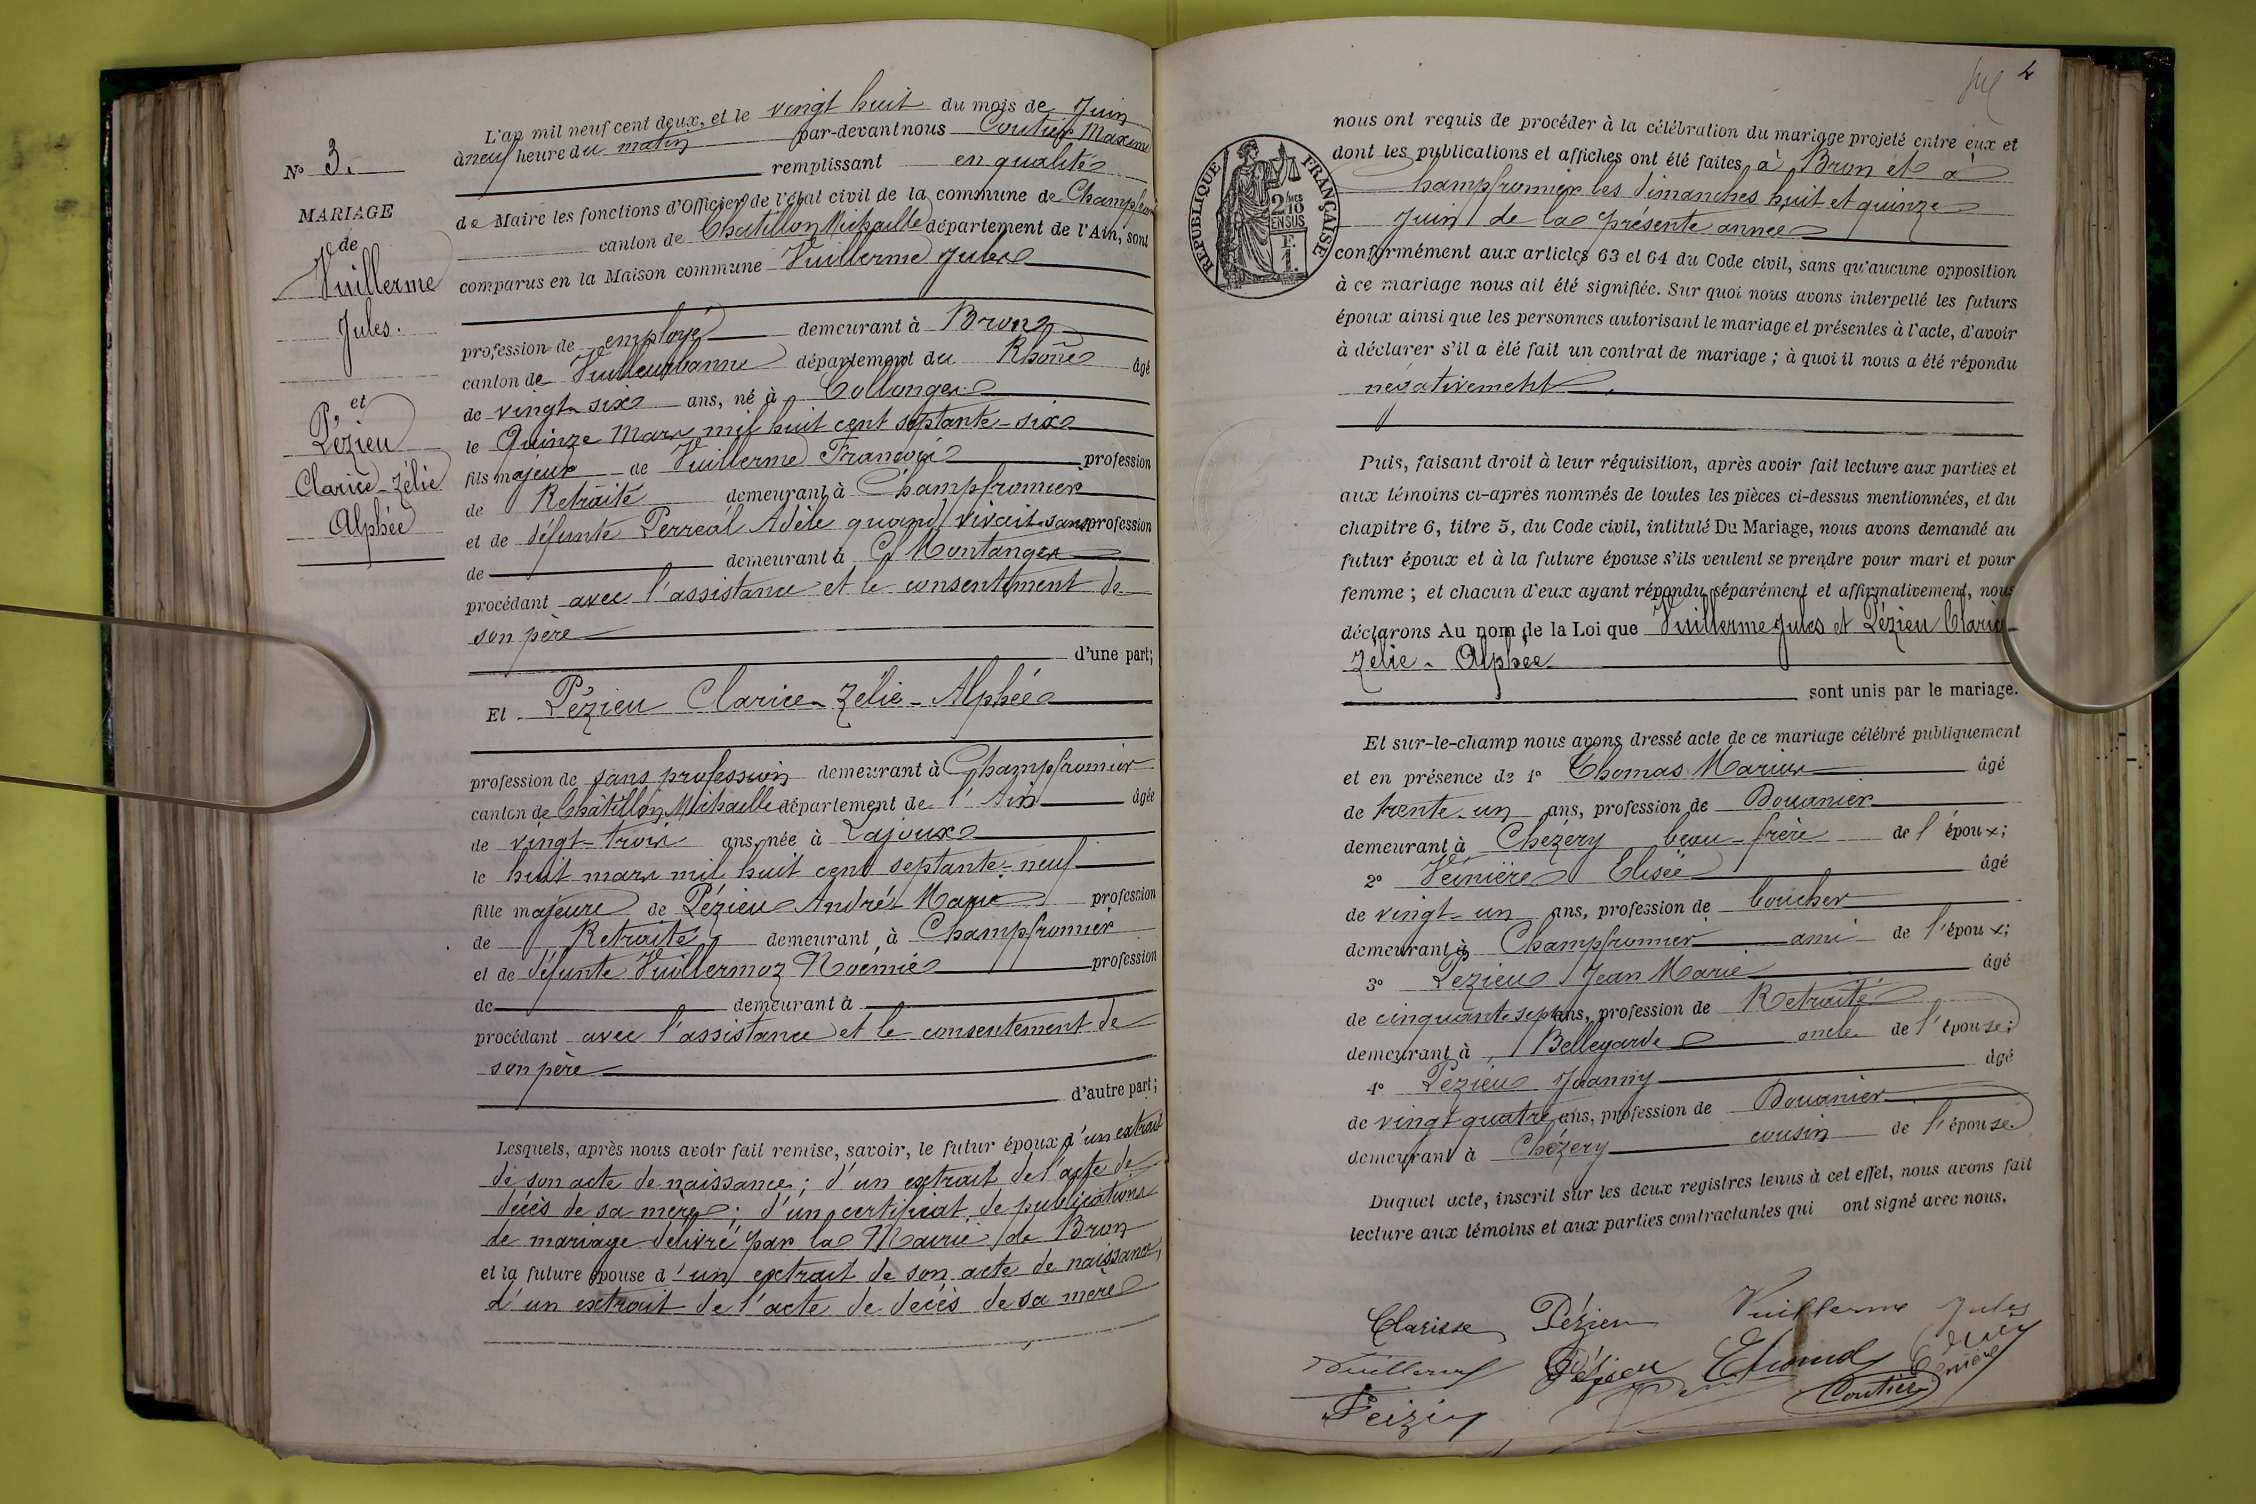 N° 3.
MARIAGE
de
Vuillerme
Jules.
et
Pézieu
Clarice-Zélie
Alphée
L'an mil neuf cent deux, et le vingt huit du mois de Juin
à neuf heure du matin par-devant nous Coutier Maxime
remplissant en qualité
de Maire les fonctions d'Officier de l'état civil de la commune de Champfromier
canton de Chatillon Michaille département de l'Ain, sont
comparus en la Maison commune Vuillerme Jules
profession de employé demeurant à Bron
canton de Villeurbanne département du Rhône âgé
de vingt-six ans, né à Collonges
le Quinze Mars mil huit cent septante-six
fils majeur de Vuillerme François profession
de Retraité demeurant à Champfromier
et de défunte Perréal Adèle quand vivait sans profession
de demeurant à Montanges
procédant avec l'assistance et le consentement de
son père
d'une part;
Et Pézieu Clarice-Zélie-Alphée
profession de sans profession demeurant à Champfromier
canton de Châtillon Michaille département de l'Ain âgée
de vingt-trois ans, née à Lajoux
le huit mars mil huit cent septante-neuf
fille majeure de Pézieu André-Marie profession
de Retraité demeurant à Champfromier
et de défunte Vuillermoz Noémie profession
de demeurant à
procédant avec l'assistance et le consentement de
son père
d'autre part;
Lesquels, après nous avoir fait remise, savoir, le futur époux d'un extrait
de son acte de naissance; d'un extrait de l'acte de
décès de sa mère; d'un certificat de publications
de mariage délivré par la Mairie de Bron
et la future épouse d'un extrait de son acte de naissance,
d'un extrait de l'acte de décès de sa mère
4
RÉPUBLIQUE FRANÇAISE
2/10 EN SUS
F.
1.
nous ont requis de procéder à la célébration du mariage projeté entre eux et
dont les publications et affiches ont été faites, à Bron et à
Champfromier les dimanches huit et quinze
Juin de la présente année
conformément aux articles 63 et 64 du Code civil, sans qu'aucune opposition
à ce mariage nous ait été signifiée. Sur quoi nous avons interpellé les futurs
époux ainsi que les personnes autorisant le mariage et présentes à l'acte, d'avoir
à déclarer s'il a été fait un contrat de mariage; à quoi il nous a été répondu
négativement.
Puis, faisant droit à leur réquisition, après avoir fait lecture aux parties et
aux témoins ci-après nommés de toutes les pièces ci-dessus mentionnées, et du
chapitre 6, titre 5, du Code civil, intitulé Du Mariage, nous avons demandé au
futur époux et à la future épouse s'ils veulent se prendre pour mari et pour
femme; et chacun d'eux ayant répondu séparément et affirmativement, nous
déclarons Au nom de la Loi que Vuillerme Jules et Pézieu Clarice
Zélie-Alphée
sont unis par le mariage.
Et sur-le-champ nous avons dressé acte de ce mariage célébré publiquement
et en présence de 1° Thomas Marius âgé
de trente-un ans, profession de Douanier
demeurant à Chezery beau-frère de l'époux;
2° Veinière Elisée âgé
de vingt-un ans, profession de boucher
demeurant à Champfromier ami de l'époux;
3° Pézieu Jean Marie âgé
de cinquante sept ans, profession de Retraité
demeurant à Bellegarde oncle de l'épouse;
4° Pézieu Joanny âgé
de vingt quatre ans, profession de Douanier
demeurant à Chézery cousin de l'épouse
Duquel acte, inscrit sur les deux registres tenus à cet effet, nous avons fait
lecture aux témoins et aux parties contractantes qui ont signé avec nous.
Clarisse Pézieu Vuillerme Jules
Vuillerme Pézieu
Coutier